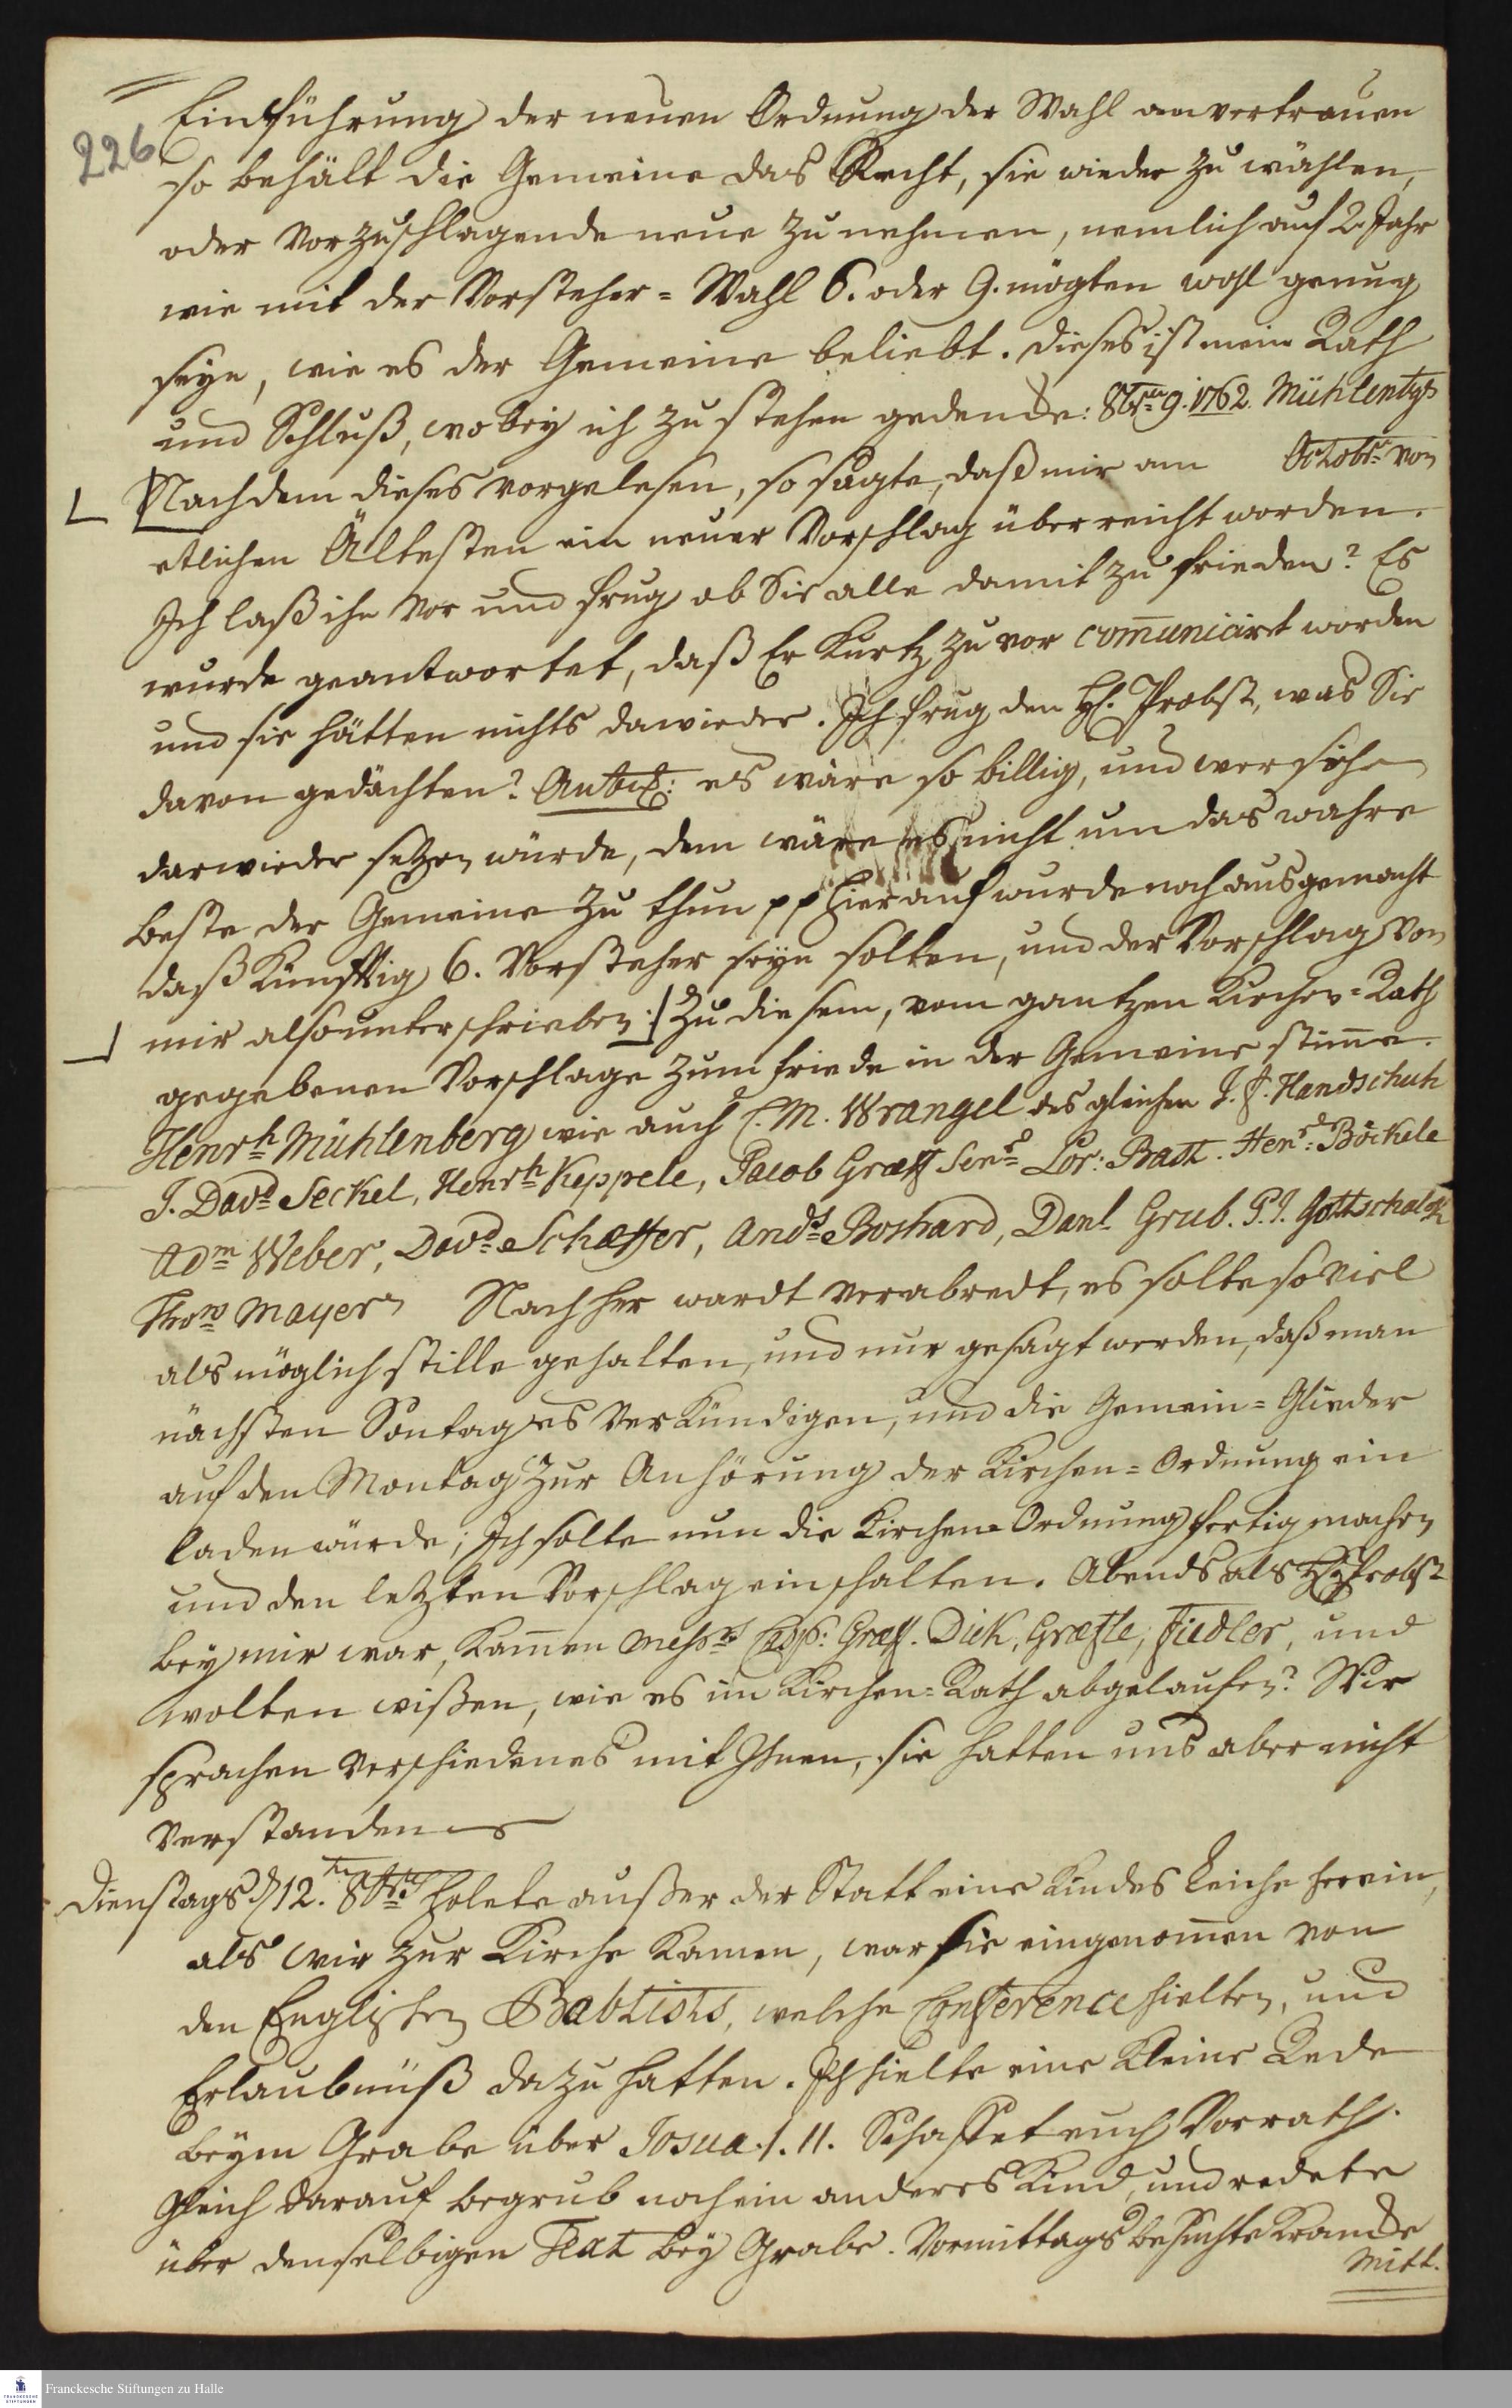 226
Einführung der neuen Ordnung der Wahl anvertrauen
so behält die Gemeine das Recht, sie wieder zu wählen,
oder vorzuschlagende neue zu nehmen, nemlich auf 2 Jahr
wie mit der Vorsteher=Wahl 6. oder 9. mögten wohl genug
seyn, wie es der Gemeine beliebt. dieses ist mein Rath
und Schluß, wobey ich zu stehen gedencke: 8br. 9. 1762. Mühlenbgs
Nachdem dieses vorgelesen, so sagte, daß mir am Octobr. von
etlichen Ältesten ein neuer Vorschlag überreicht worden.
Ich laß ihn vor und frug ob Sie alle damit zu frieden? Es
wurde geantwortet, daß Er Kurtz zuvor com̄uniciret worden
und sie hätten nichts dawieder. Ich frug den H. Probst, was Sie
davon gedächten? Antw: es wäre so billig, und wer sich
darwieder setzen würde, dem wäre es nicht um das wahre
beste der Gemeine zu thun pp Hierauf wurde noch ausgemacht
daß Künfftig 6. Vorsteher seyn solten, und der Vorschlag von
mir also unterschrieben:/ Zu diesem, vom gantzen Kirchen=Rath
gegebenen Vorschlage zum friede in der Gemeine stim̄e.
Henrh Mühlenberg wie auch C. M. Wrangel des gleichen J. F. Handschuh
J. Davd Seckel, Henrh Keppele, Jacob Græff Senr Lor: Bast. Henr: Böckele
Adm Weber, Davd Schæffer, Ands Boshard, Danl Grub. P. J. Gottschalck
Thos Mayer Nachher wardt verabredt, es solte so viel
als möglich stille gehalten, und nur gesagt werden, daß man
nächsten Sontag es verkündigen, und die Gemein=Glieder
auf den Montag zur Anhörung der Kirchen=Ordnung ein
laden würde; Ich solte nun die Kirchen=Ordnung fertig machen
und den letzten Vorschlag einschalten. Abends als H Probst
bey mir war, kam̄en Messrs Casp: Græf. Dick, Græfle, Fiedler, und
wolten wißen, wie es im Kirchen=Rath abgelaufen? Wir
sprachen verschiedenes mit Ihnen, sie hatten uns aber nicht
verstanden
Dienstags d 12. 8br holete außer der Statt eine Kindes Leiche herein,
als wir zur Kirche kamen, war sie eingenom̄en von
den Englischen Babtists, welche Conference hielten, und
Erlaubnüß dazu hatten. Ich hielte eine kleine Rede
beym Grabe über Josua. 1. 11. Schaffet euch Vorrath.
Gleich darauf begrub noch ein anderes Kind, und redete
über denselbigen Text bey Grabe. Vormittags besuchte Krancke
Mitt.
Franckesche Stiftungen zu Halle